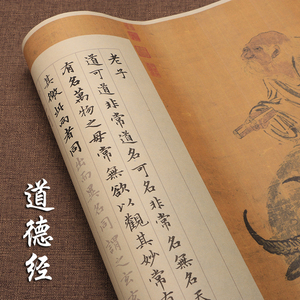 老子
道可道非常道名可名非常名無名天
有名萬物之母常無欲以觀其妙常有
其徼此兩者同出而異名同謂之玄
道德经